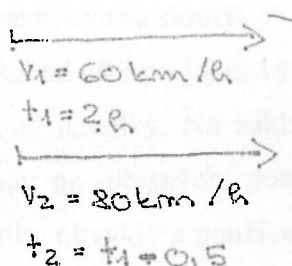 v₁ = 60 km/h
t₁ = 2 h
v₂ = 80 km/h
t₂ = t₁ = 0,5